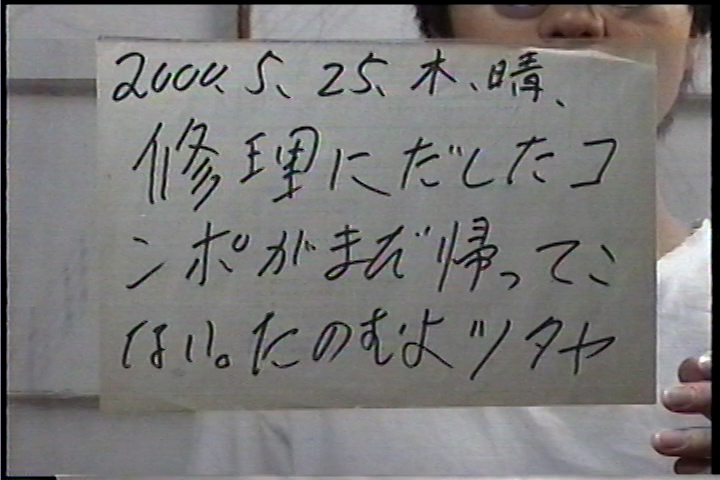 2000、5、25、木、晴、
修理にだしたコ
ンポがまだ帰ってこ
ない。たのむよツタヤ